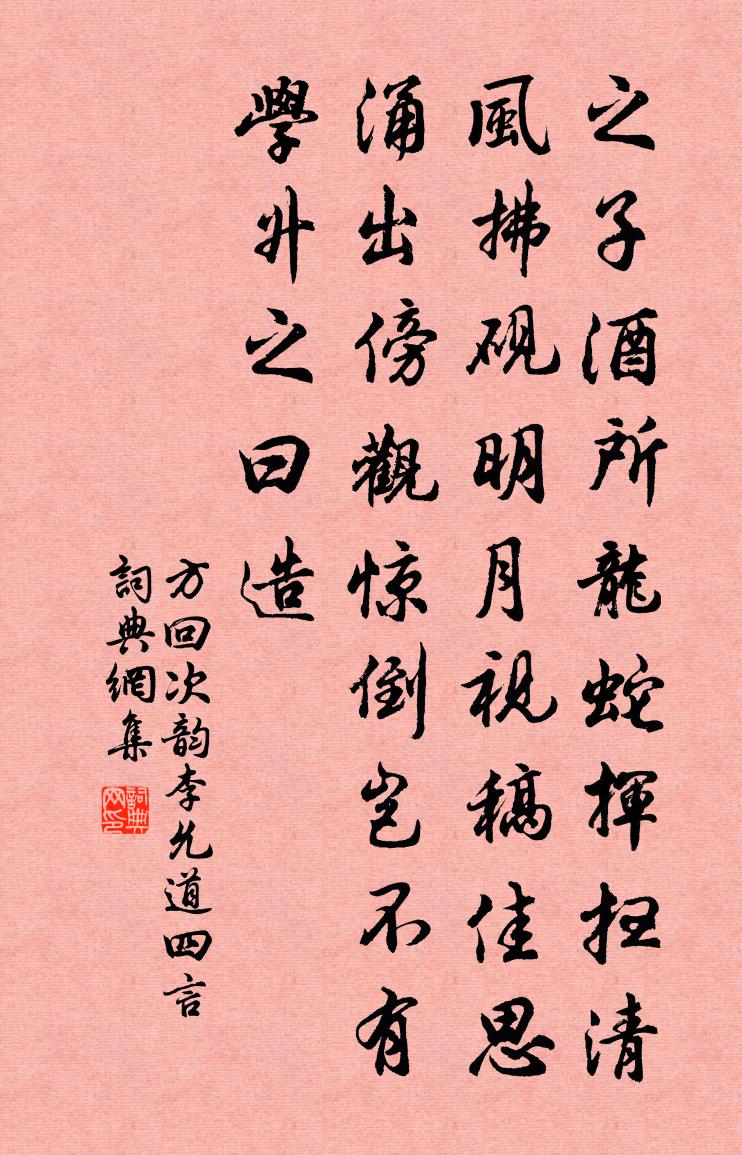 之子酒所龍蛇揮掃清
風拂硯明月視稿佳思
涌出傍觀惊倒豈不有
學升之曰造
方回次韵李允道四言
詞典網集
詞典
网印